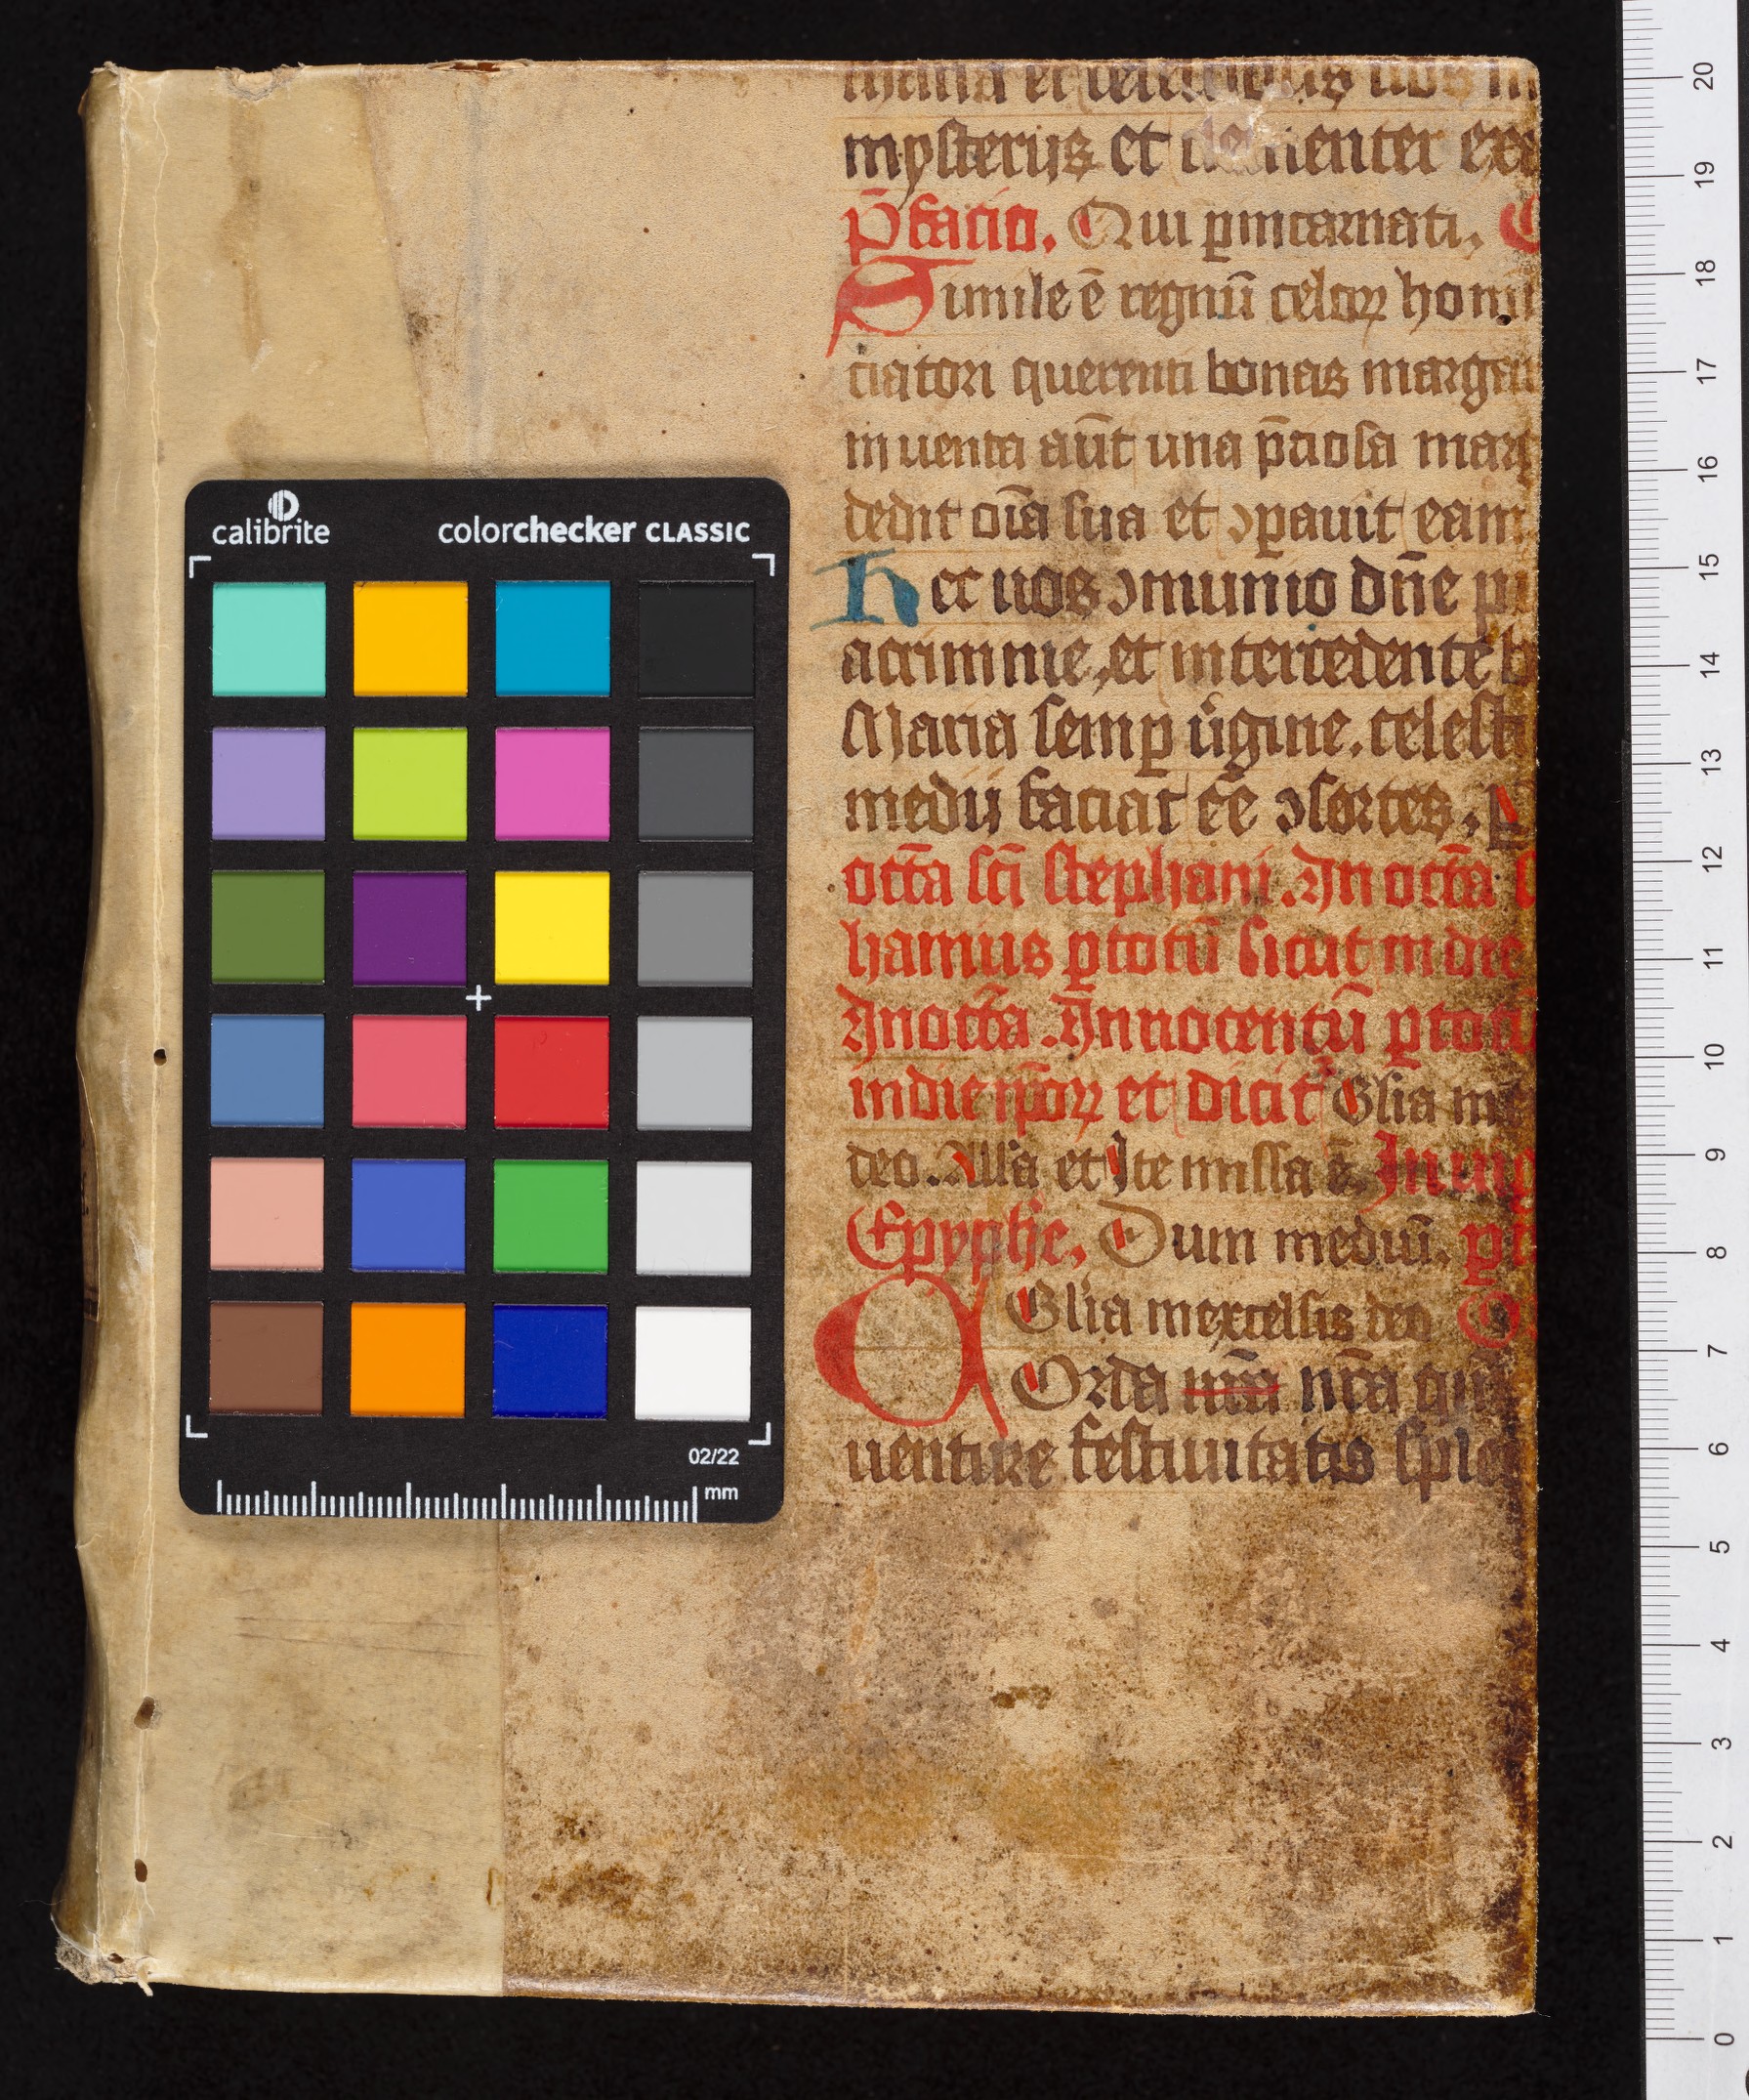 mysterijs et clementer exa
p̄facio. Qui ꝑ incarnati. C
Simile ē regnū celoꝝ homi
ciatori querenti bonas marga
inuenta aūt una p̄ciosa marg
dedit oīa sua et ↄꝑauit eam
Hec nos ↄmunio dn̄e pu
a crimine, et intercedente b
Maria semꝑ ůgine. celest
medij faciat eē ↄsortes. P
octā sc̄i stephani. In octā
hannis ꝑ totū sicut in die
In octā. Innocentū ꝑ totū
in die ip̄oꝝ et dicit᷑ Glīa in
deo. Allīa et Ite missa ē. In uig
Epyphīe. Dum mediū.
Glīa in excelsis deo
Corda nrā nrā qs̄
uenture festiuitatis sple
calibrite
colorchecker CLASSIC
02/22
mm
20
19
18
17
16
15
14
13
12
11
10
9
8
7
6
5
4
3
2
1
0